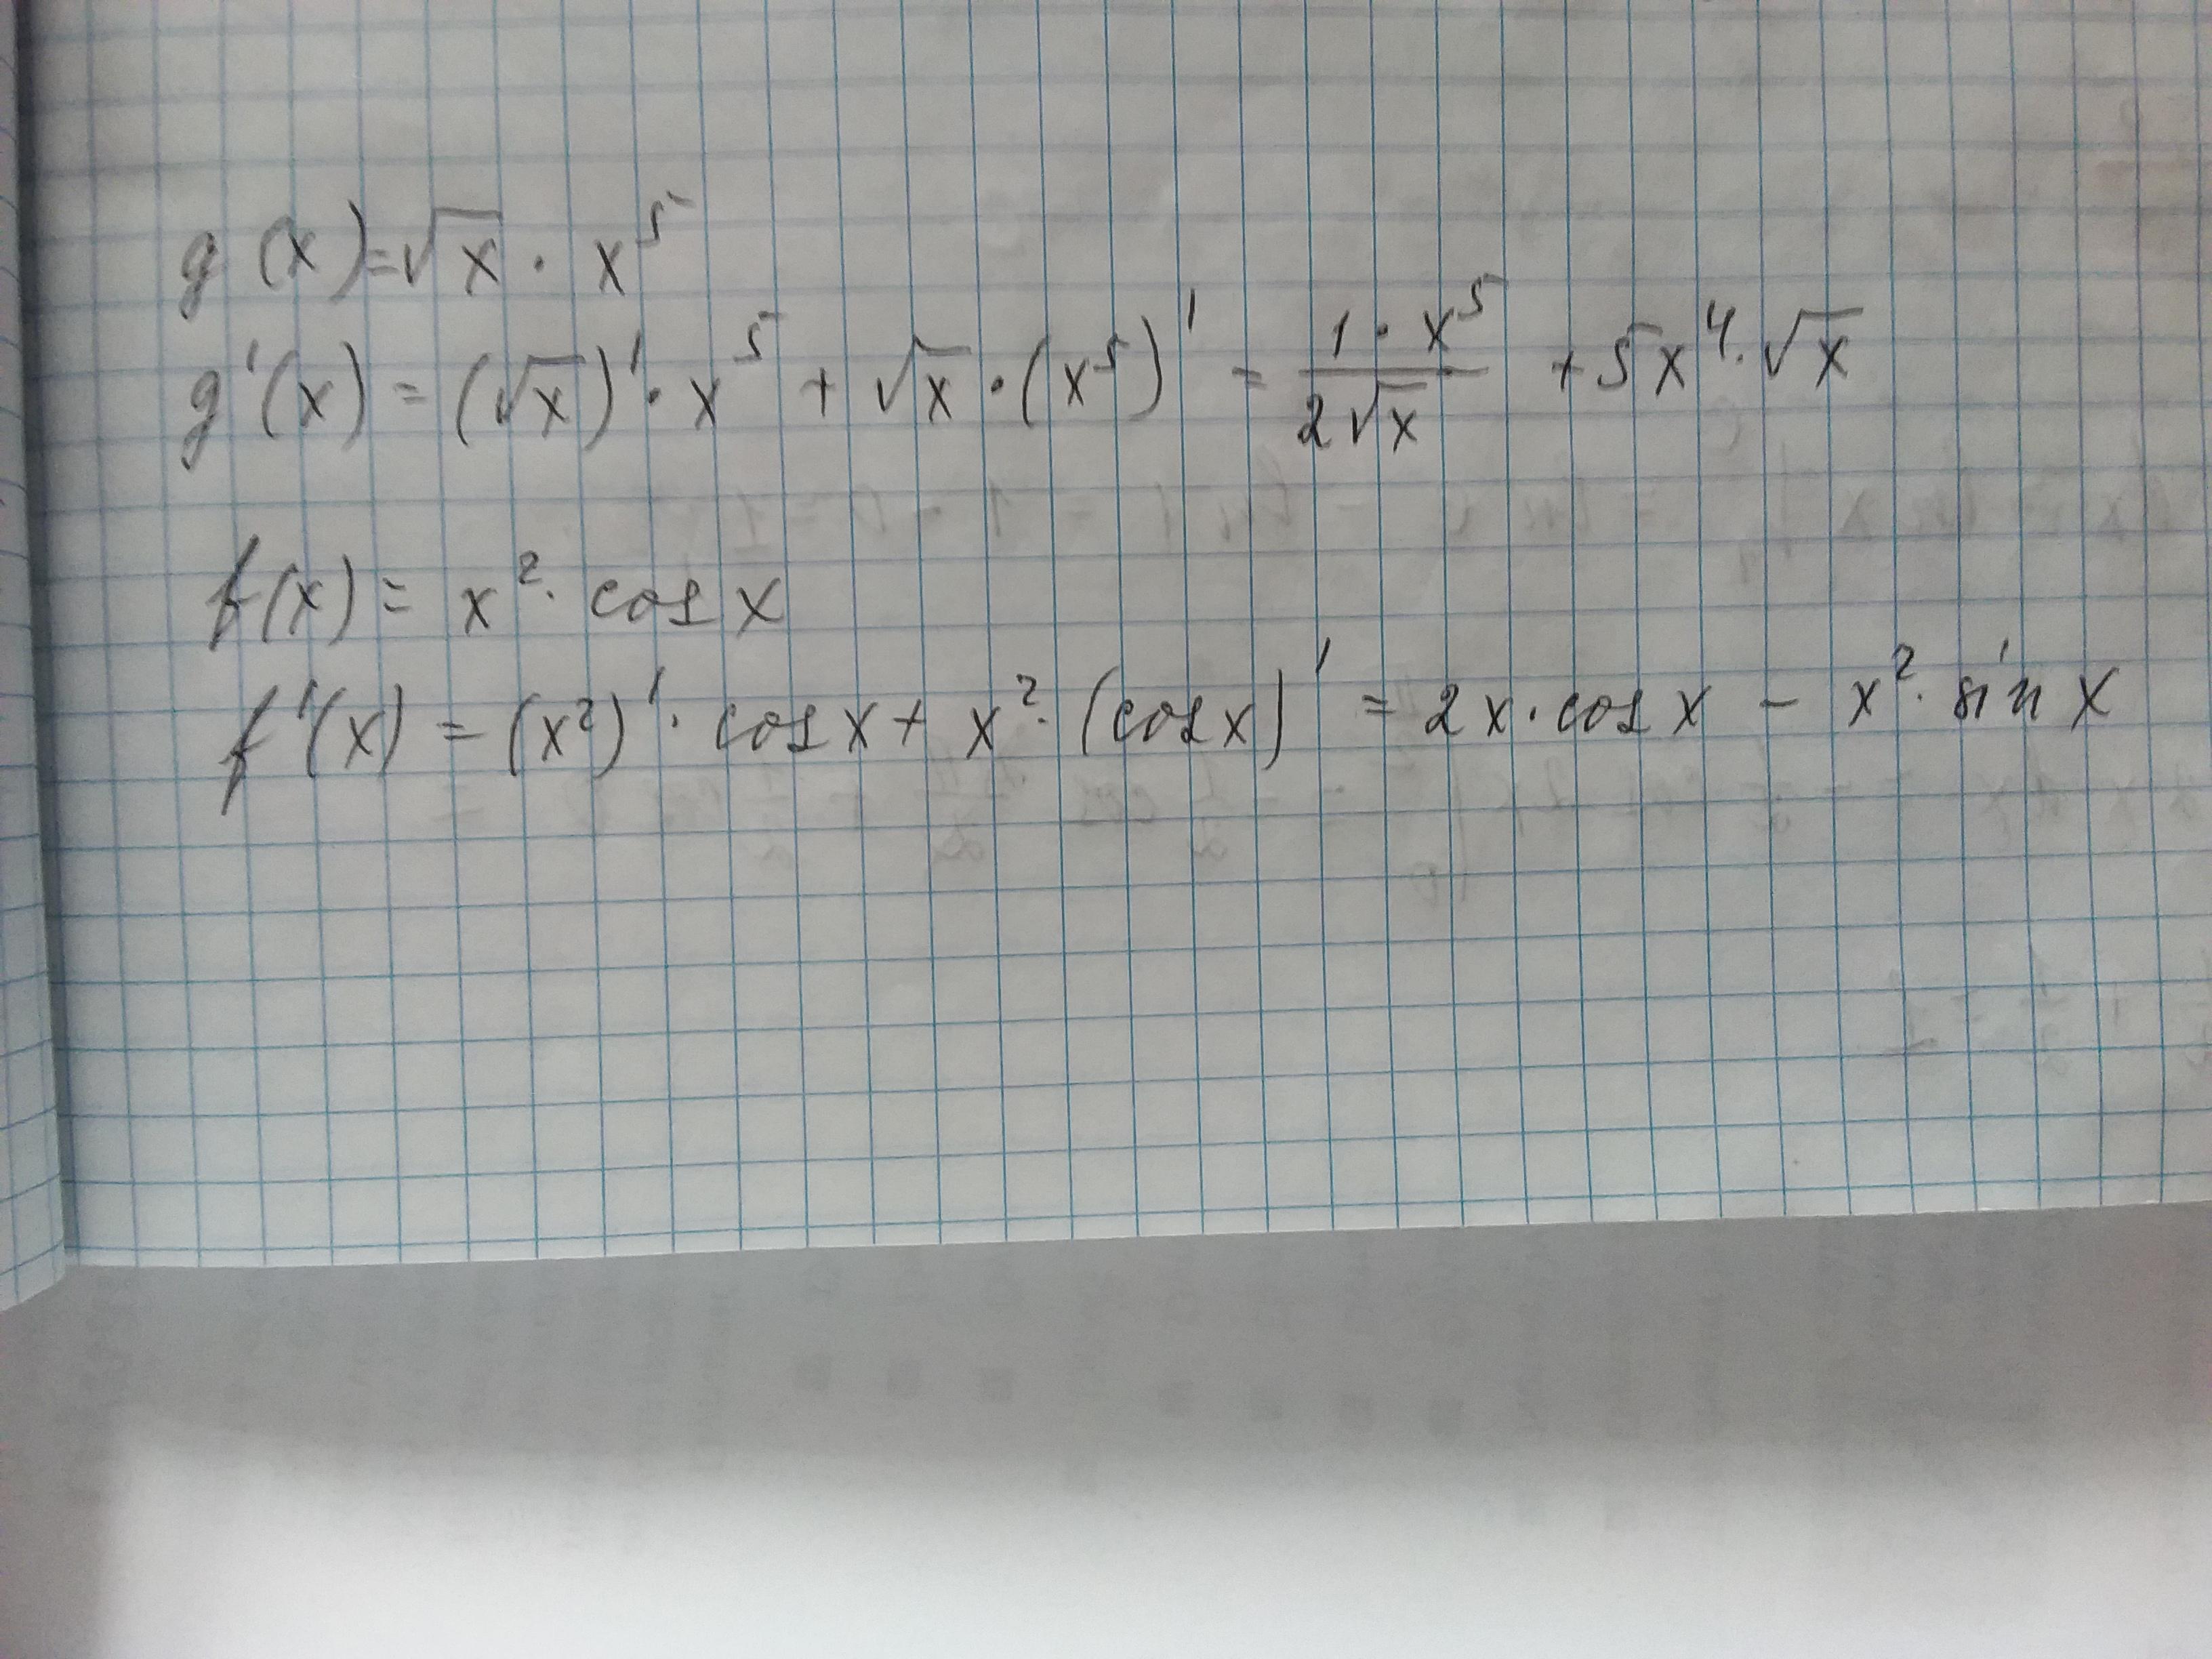 g(x)=√x · x⁵
g'(x) = (√x)' · x⁵ + √x · (x⁵)' = (1 · x⁵)/(2√x) + 5x⁴ · √x
f(x) = x² · cos x
f'(x) = (x²)' · cos x + x² · (cos x)' = 2x · cos x − x² · sin x